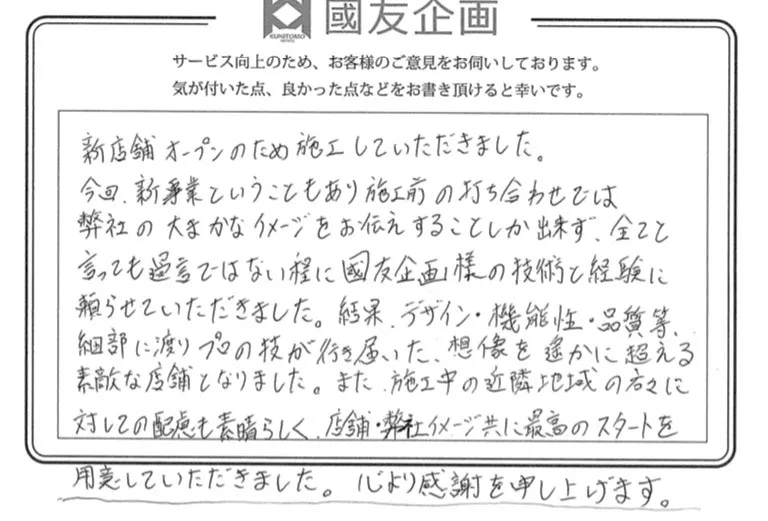 KUNITOMO
國友企画
サービス向上のため、お客様のご意見をお伺いしております。
気が付いた点、良かった点などをお書き頂けると幸いです。
新店舗オープンのため施工していただきました。
今回、新事業ということもあり施工前の打ち合わせでは
弊社の大まかなイメージをお伝えすることしか出来ず、全てと
言っても過言ではない程に國友企画様の技術と経験に
頼らせていただきました。結果、デザイン・機能性・品質等、
細部に渡りプロの技が行き届いた、想像を遥かに超える
素敵な店舗となりました。また、施工中の近隣地域の方々に
対しての配慮も素晴らしく、店舗・弊社イメージ共に最高のスタートを
用意していただきました。心より感謝を申し上げます。